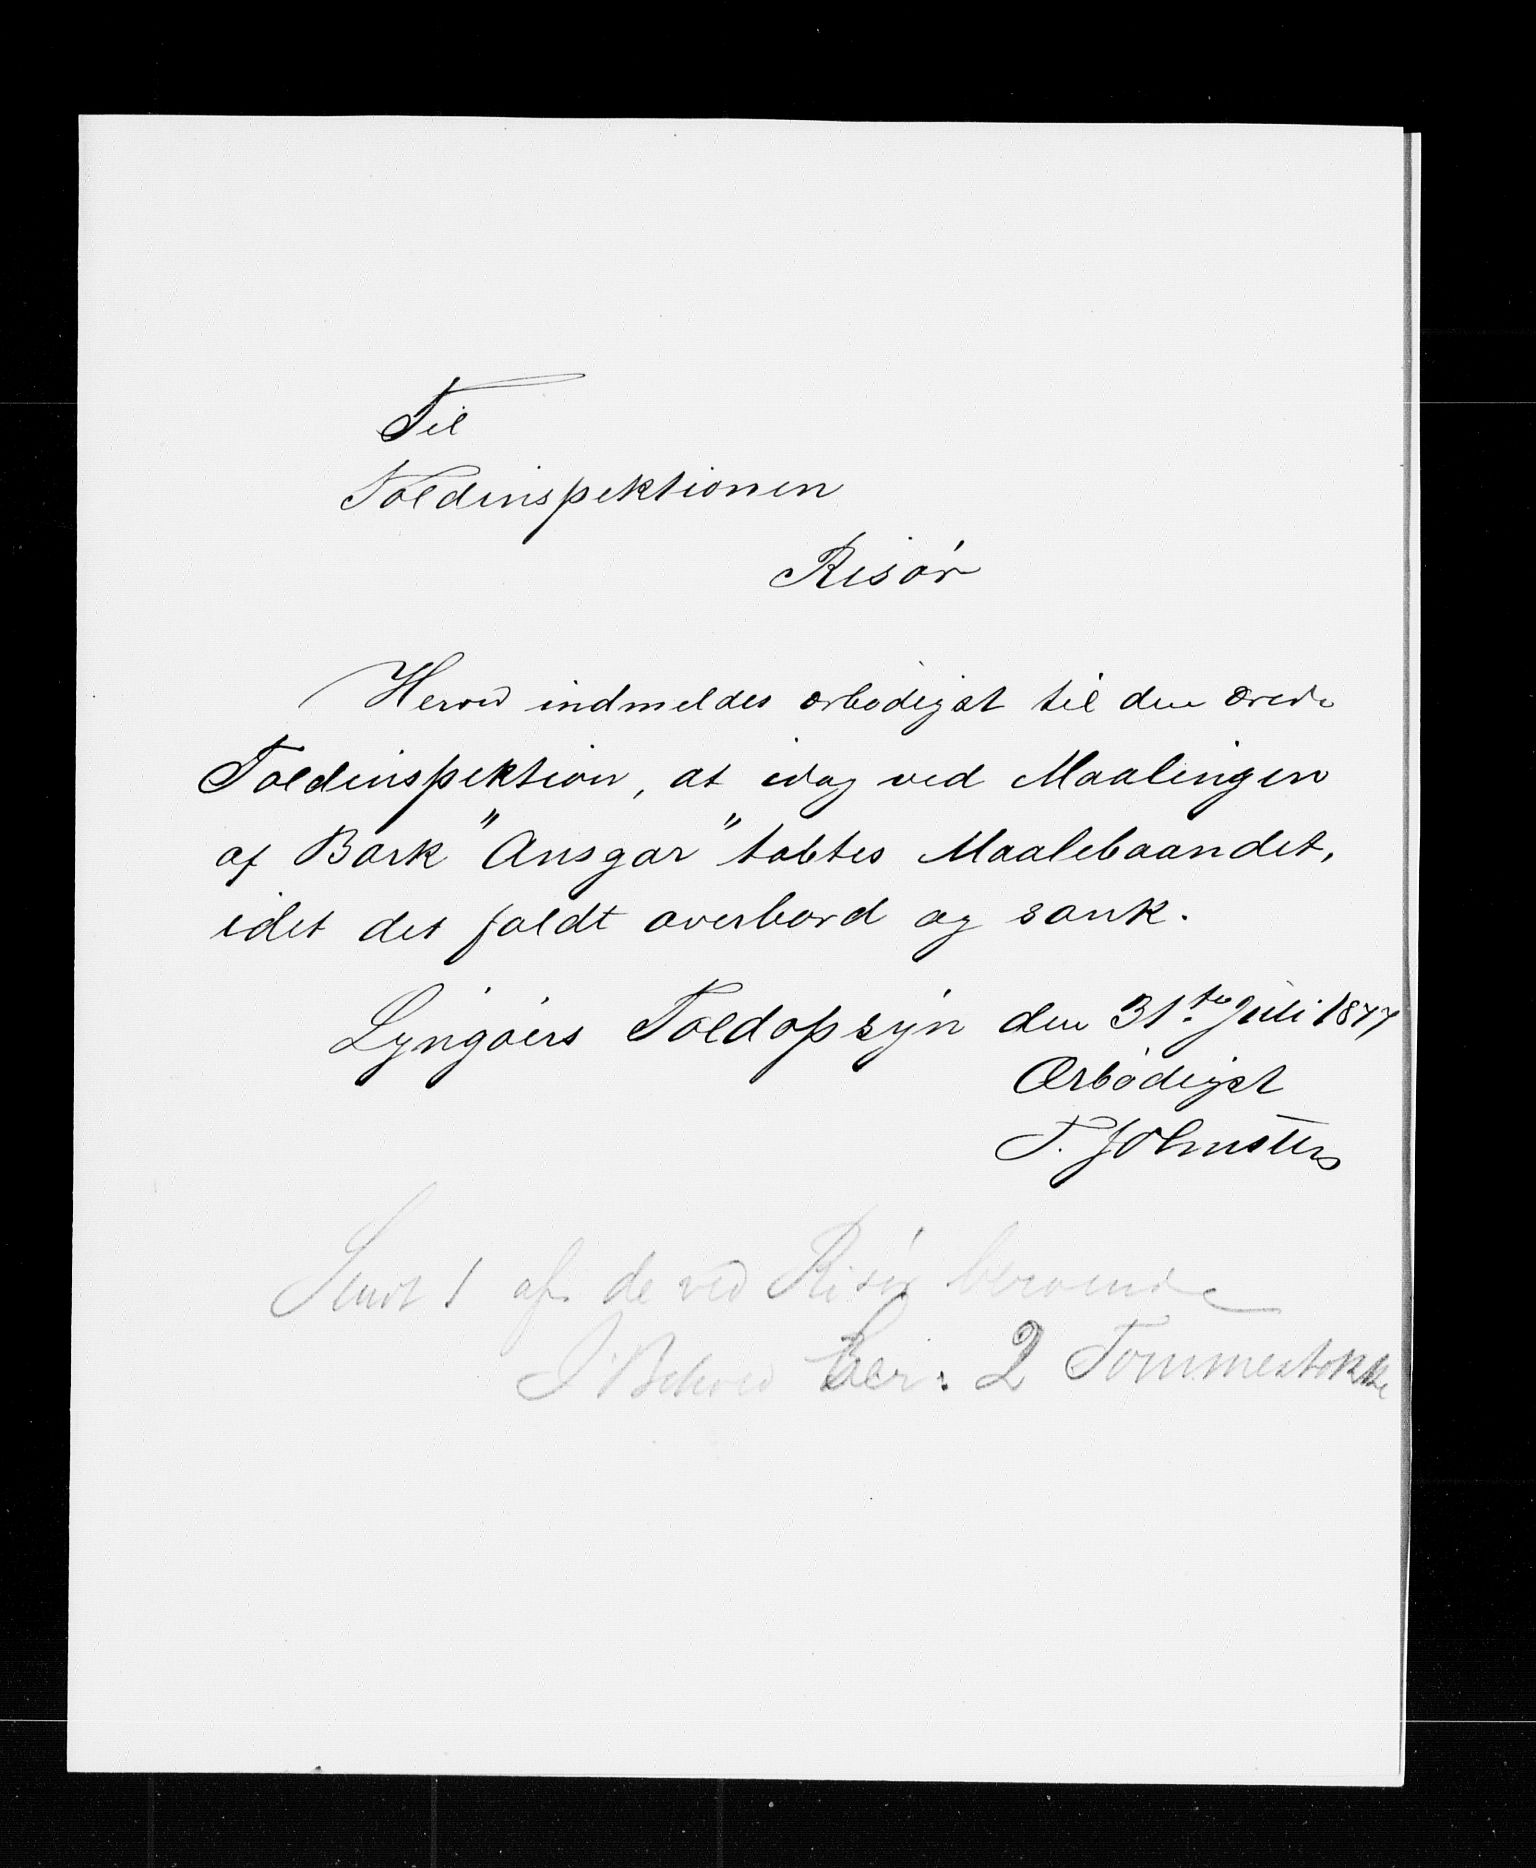 Til
Toldinspektionen
Risør
Herved indmeldes ærbødigst til den ærede
Toldinspektion, at idag ved Maalingen
af Bark "Ansgar" tabtes Maalebaandet,
idet det faldt overbord og sank.
Lyngøers Toldopsyn den 31te Juli 1877
Ærbødigst
T. Johnsen
Sendt 1 af de ved Risør beroende
I Behold er: 2 Tommestokke